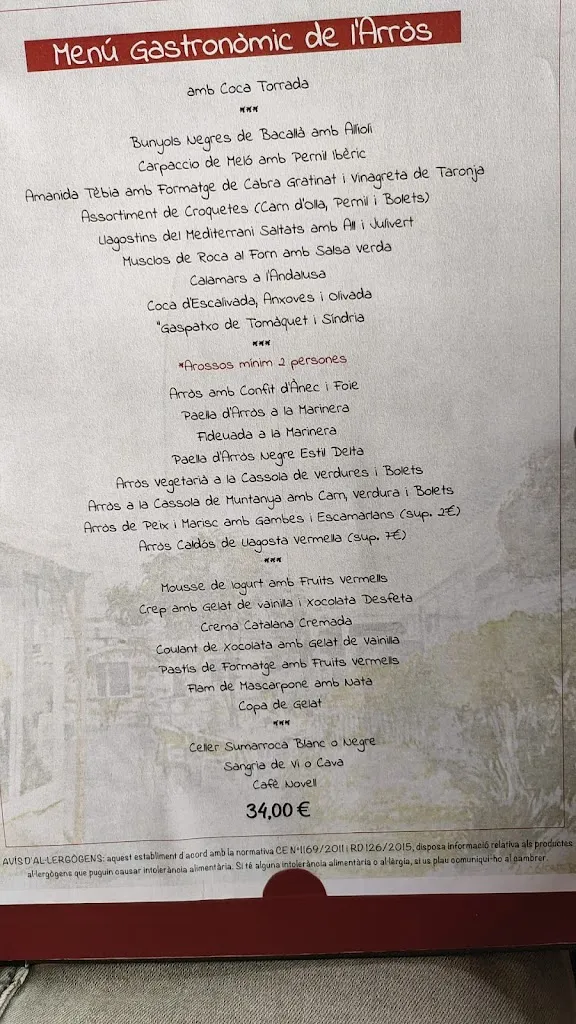 Menú Gastronòmic de l'Arròs
amb Coca Torrada
***
Bunyols Negres de Bacallà amb Allioli
Carpaccio de Meló amb Pernil Ibèric
Amanida Tèbia amb Formatge de Cabra Gratinat i Vinagreta de Taronja
Assortiment de Croquetes (Carn d'Olla, Pernil i Bolets)
Llagostins del Mediterrani Saltats amb All i Julivert
Musclos de Roca al Forn amb Salsa Verda
Calamars a l'Andalusa
Coca d'Escalivada, Anxoves i Olivada
"Gaspatxo de Tomàquet i Síndria
***
*Arossos mínim 2 persones
Arròs amb Confit d'Ànec i Foie
Paella d'Arròs a la Marinera
Fideuada a la Marinera
Paella d'Arròs Negre Estil Delta
Arròs Vegetarià a la Cassola de Verdures i Bolets
Arròs a la Cassola de Muntanya amb Carn, Verdura i Bolets
Arròs de Peix i Marisc amb Gambes i Escamarlans (sup. 2€)
Arròs Caldós de Llagosta Vermella (sup. 7€)
***
Mousse de Iogurt amb Fruits Vermells
Crep amb Gelat de Vainilla i Xocolata Desfeta
Crema Catalana Cremada
Coulant de Xocolata amb Gelat de Vainilla
Pastís de Formatge amb Fruits Vermells
Flam de Mascarpone amb Nata
Copa de Gelat
***
Celler Sumarroca Blanc o Negre
Sangria de Vi o Cava
Cafè Novell
34,00 €
AVÍS D'AL·LERGÒGENS: aquest establiment d'acord amb la normativa CE Nº1169/2011 i RD 126/2015, disposa informació relativa als productes
al·lergògens que puguin causar intolerància alimentària. Si té alguna intolerància alimentària o al·lèrgia, si us plau comuniqui-ho al cambrer.